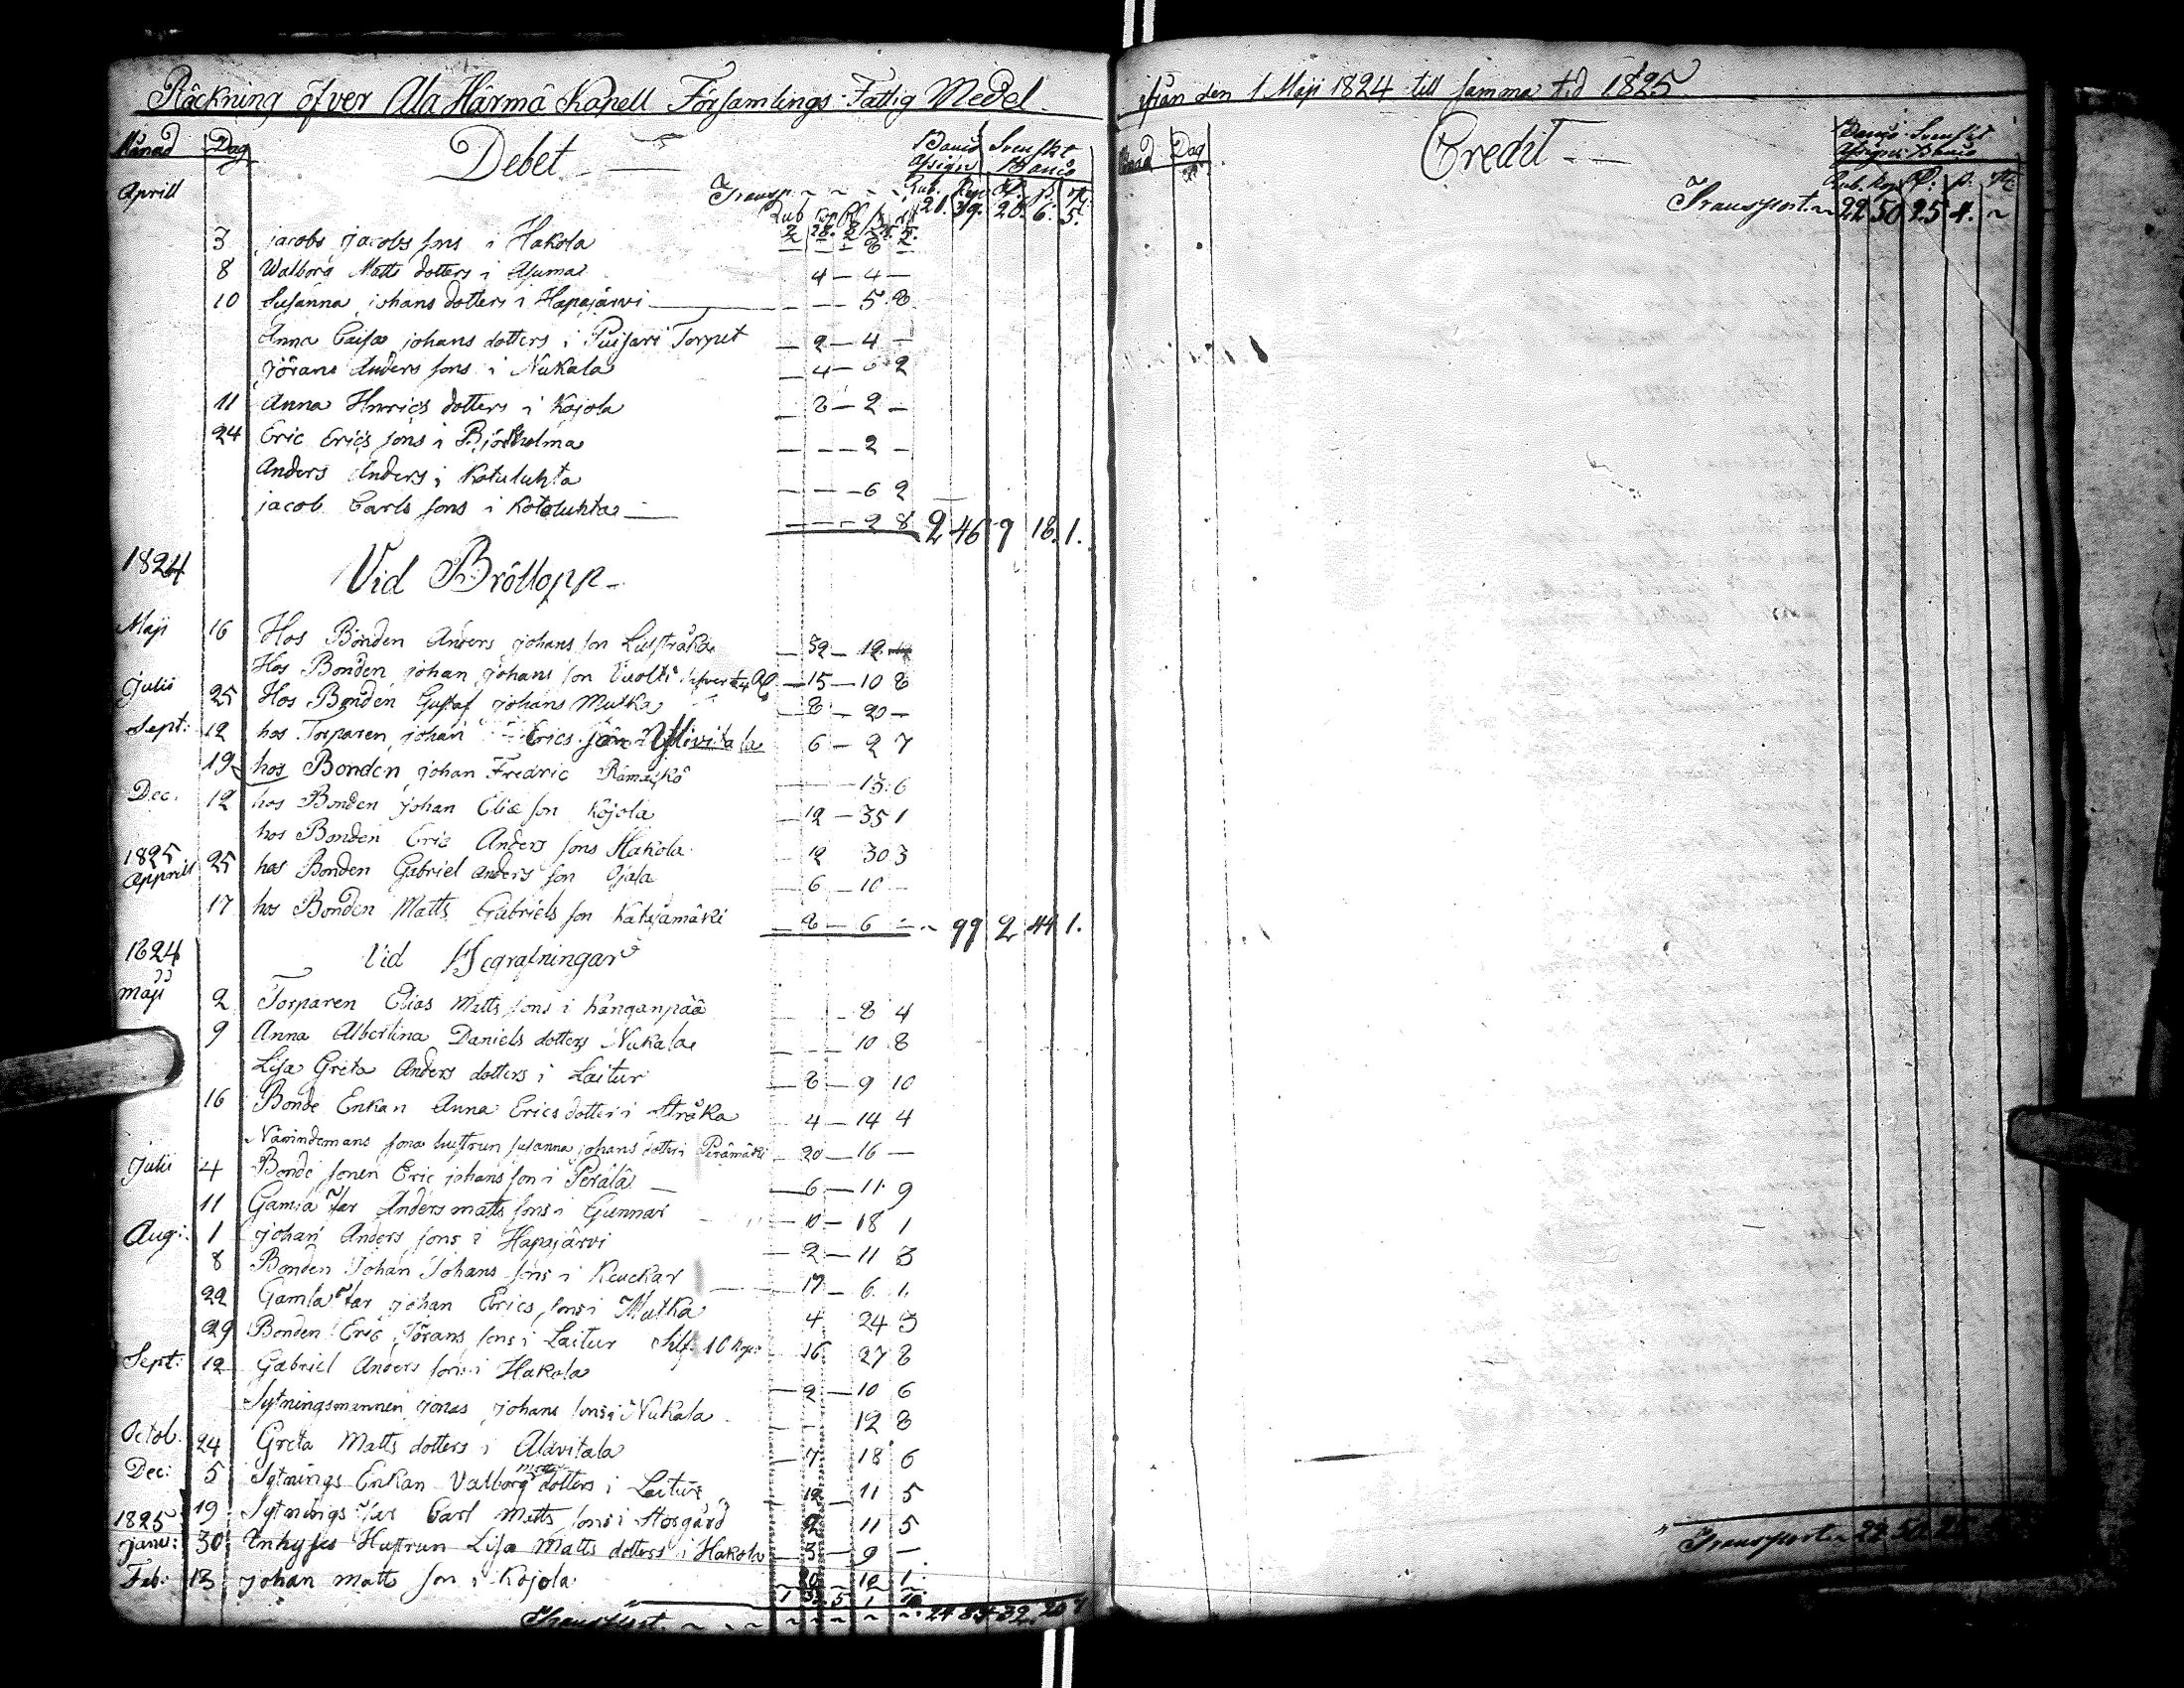 Räckning öfver Ala Härmä Kapell Församlings Fattig Medel
Månad Dag Debet Banco Assign: Svenskt Banco
Aprill Transp. Rub. Kop. 21. 39. 28. 6. 5.
2 28. 8 24. 5.
3 jacobs jacobs sons i Hakola — — — 8 2.
8 Walborg Matts dotters i Asuma 4 — 4 —
10 Susanna johans dotters i Hapajärvi — — — 5. 8
Anna Caisa johans dotters i Puisari Torpet — 2 — 4 —
jörans Anders sons i Nukala — 4 — 6 2
11 Anna Henrics dotters i Kojola — 8 — 2 —
24 Eric Erics sons i Björkholma — — — 2 —
Anders Anders i Kotuluhta — — — 6 2
jacob Carls sons i Kotoluhta — — — — 2 8 2 46 9 18. 1.
1824 Vid Bröllopp
Maji 16 Hos Bonden Anders johans son Luistraka — 52 — 12
Hos Bonden johan johans son Vuolti — 15 — 10 8
Julii 25 Hos Bonden Gustaf johans Mutka — 8 — 20 —
Sept: 12 hos Torparen johan Erics son Ylivitala 6 — 2 7
19 hos Bonden johan Fredric Rämäckö — — — 13. 6
Dec. 12 hos Bonden johan Elia son Kojola — 12 — 35 1
hos Bonden Eric Anders sons Hakola — 12 30 3
1825 Appriil 25 hos Bonden Gabriel anders son Ojala — 6 — 10 —
17 hos Bonden Matts Gabriels son Katajamäki — 8 — 6 — 99 2 44 1.
1824 Vid Begrafningar
maji 2 Torparen Elias Matts sons i Kanganpää 8 4
9 Anna Albertina Daniels dotters Nukala — — — 10 8
Lisa Greta Anders dotters i Laitur — 8 — 9 10
16 Bonde Enkan Anna Erics dotter i Stråka — 4 — 14 4
Nämndemans sona hustrun susanna johans dotter i Perämäki — 20 — 16 —
Julii 4 Bonde sonen Eric johans son i Perälä — 6 — 11. 9
11 Gamla Far Anders matts sons i Gunnar — 10 — 18 1
Aug: 1 johan Anders sons i Hapajärvi — 2 — 11 3
8 Bonden Johan Johans sons i Keuckar — 17 — 6. 1.
22 Gamla Far johan Erics sons i Mutka 4 24 3
29 Bonden Eric Jörans sons i Laitur 16. 27 8
Sept: 12 Gabriel Anders sons i Hakola — 2 — 10 6
Sytningsmannen jonas johans sons i Nukala 12 8
Octob. 24 Greta Matts dotters i Alavitala — 7 18 6
Dec: 5 Sytnings Enkan Valborg matts dotters i Laitur 12 — 11 5
19 Sytnings Far Carl Matts sons i Storgård 2 11 5
1825 janu: 30 Inhyses Hustrun Lisa Matts dotters i Hakola 3 — 9 —
Feb: 13 johan matts son i Kojola 12 1.
Transport. 24 84 32. 20
ifrån den 1 Maji 1824 till samma tid 1825
Månad Dag Credit Banco Assign: Svenskt Banco
Rub. Kop.
Transport. 22 50 25 4. ~
Transport. 22. 50. 25